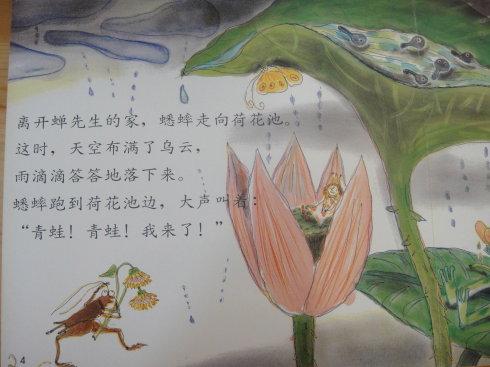 离开蝉先生的家，蟋蟀走向荷花池。
这时，天空布满了乌云，
雨滴滴答答地落下来。
蟋蟀跑到荷花池边，大声叫着：
“青蛙！青蛙！我来了！”
4